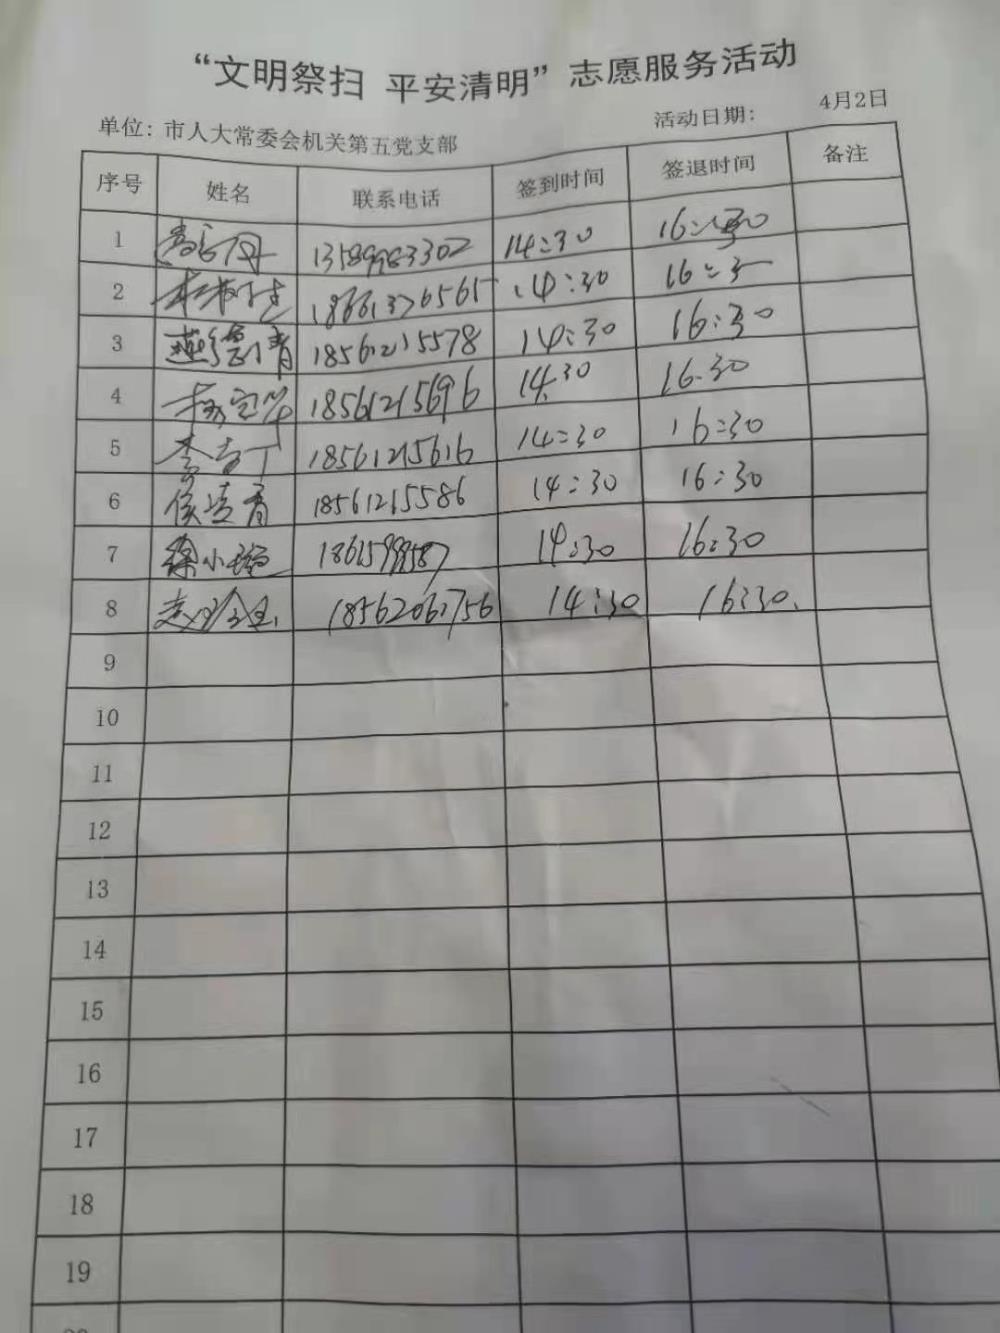 “文明祭扫 平安清明”志愿服务活动
单位：市人大常委会机关第五党支部 活动日期： 4月2日
序号 姓名 联系电话 签到时间 签退时间 备注
1 13589983302 14:30 16:30
2 18661376565 14:30 16:3
3 燕德青 18561215578 14:30 16:30
4 18561215696 14.30 16.30
5 18561215616 14:30 16:30
6 侯清香 18561215586 14:30 16:30
7 徐小 14:30 16:30
8 18562061756 14:30 16:30.
9
10
11
12
13
14
15
16
17
18
19